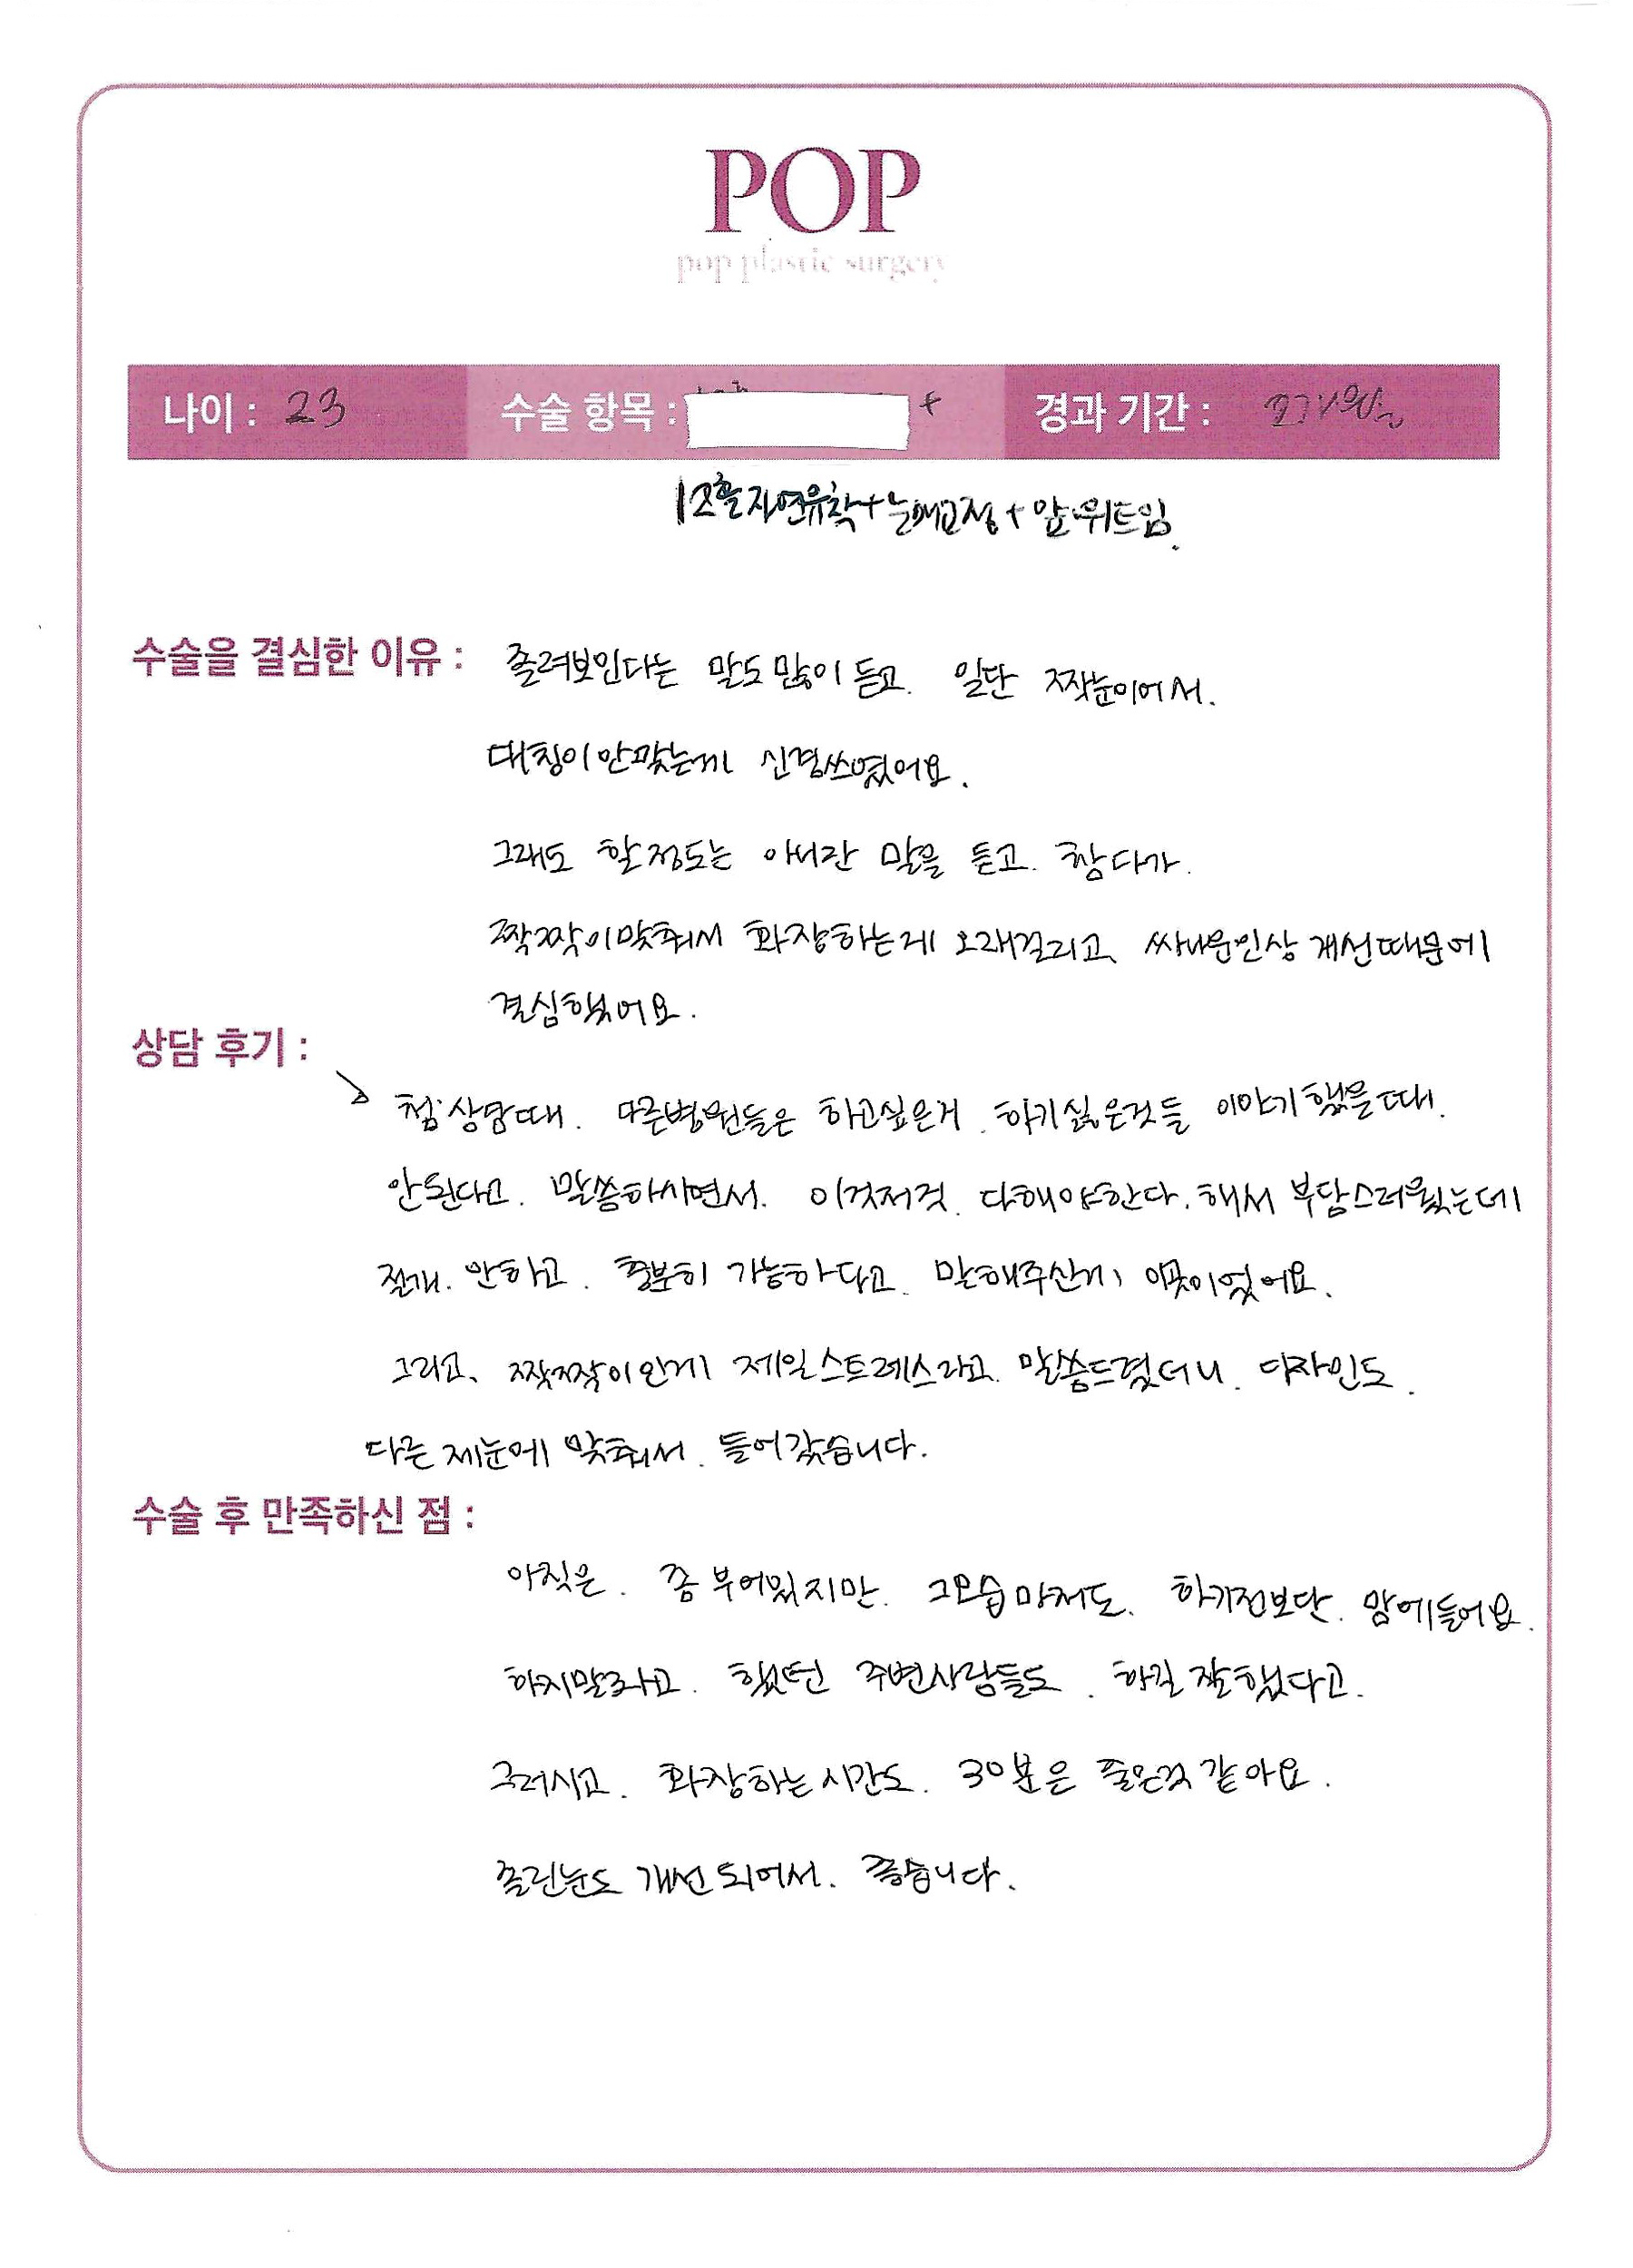 POP
pop plastic surgery
나이 : 23 수술 항목 : + 경과 기간 :
12홀자연유착+눈매교정+앞·위트임.
수술을 결심한 이유 : 졸려보인다는 말도 많이 듣고. 일단 짝눈이어서.
대칭이 안맞는게 신경쓰였어요.
그래도 할정도는 아니란 말을 듣고. 참다가.
짝짝이맞춰서 화장하는게 오래걸리고, 싸나운인상 개선때문에
결심했어요.
상담 후기 :
첨 상담때. 다른병원들은 하고싶은거. 하기싫은것들 이야기했을때.
안된다고. 말씀하시면서. 이것저것. 다해야한다. 해서 부담스러웠는데
절개. 안하고. 충분히 가능하다고. 말해주신게 이곳이었어요.
그리고, 짝짝이인게 제일스트레스라고. 말씀드렸더니. 디자인도.
다른 제눈에 맞춰서. 들어갔습니다.
수술 후 만족하신 점 :
아직은. 좀 부어있지만. 그모습마저도. 하기전보단. 맘에들어요.
하지말라고. 했던 주변사람들도. 하길 잘했다고.
그러시고. 화장하는시간도. 30분은 줄은것 같아요.
졸린눈도 개선되어서. 좋습니다.